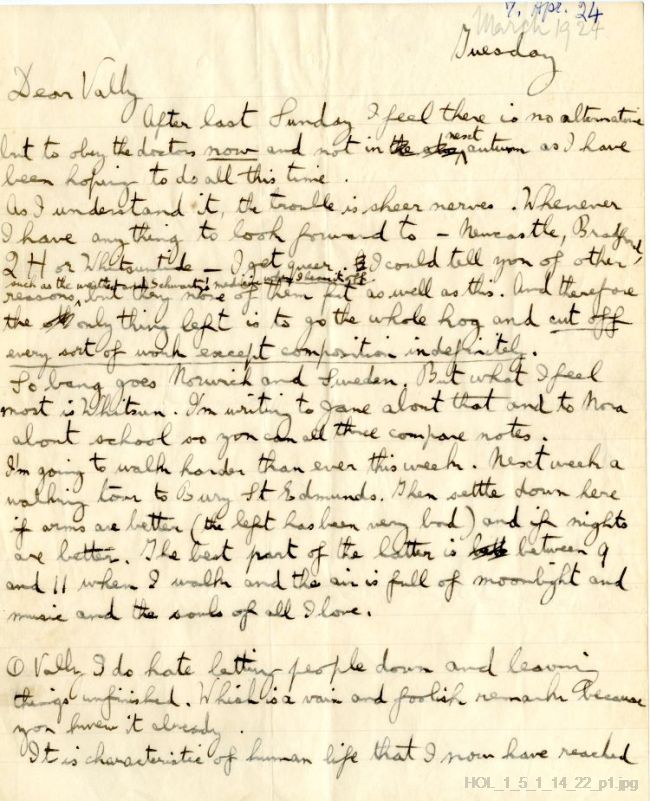 7. Apr. 24
March 1924
Tuesday
Dear Vally
After last Sunday I feel there is no alternative
but to obey the doctors now and not in the next autumn as I have
been hoping to do all this time.
As I understand it, the trouble is sheer nerves. Whenever
I have anything to look forward to – Newcastle, Bradford,
Q H or Whitsuntide – I get queer. I could tell you of other
such as the weather and
reasons, but they none of them fit as well as this. And therefore
the only thing left is to go the whole hog and cut off
every sort of work except composition indefinitely.
So bang goes Norwich and Sweden. But what I feel
most is Whitsun. I'm writing to Jane about that and to Nora
about school so you can all three compare notes.
I'm going to walk harder than ever this week. Next week a
walking tour to Bury St Edmunds. Then settle down here
if arms are better (the left has been very bad) and if nights
are better. The best part of the latter is between 9
and 11 when I walk and the air is full of moonlight and
music and the souls of all I love.
O Vally I do hate letting people down and leaving
things unfinished. Which is a vain and foolish remark because
you knew it already.
It is characteristic of human life that I now have reached
HOL_1_5_1_14_22_p1.jpg